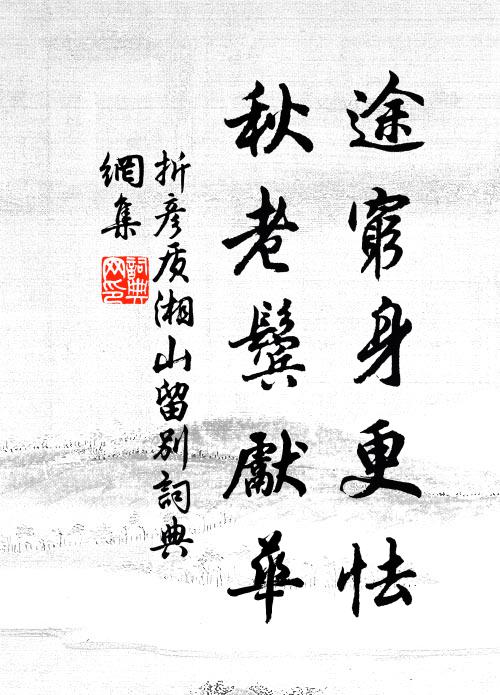 途窮身更怯
秋老鬢獻華
折彥质湘山留别詞典
網集
詞典
网印